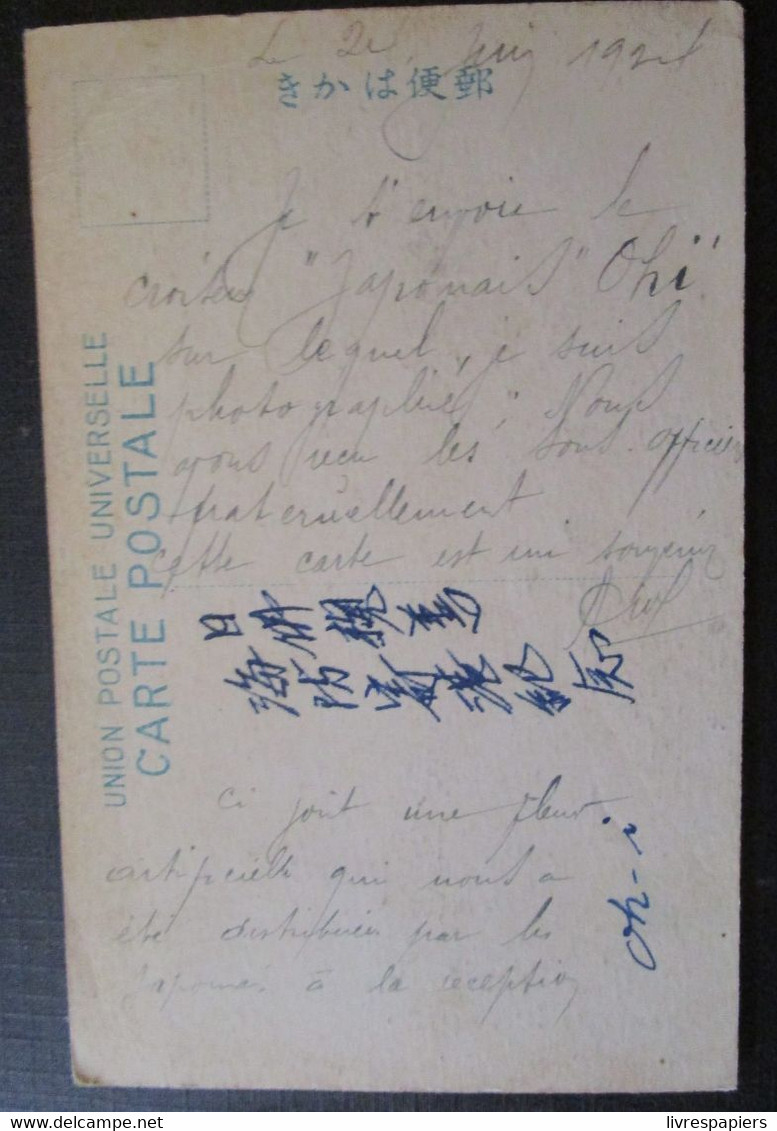 Le 2 Juin 192
きかは便郵
Je t'envoie le
croiseur "Japonais" "Ohi"
sur lequel, je suis
photographié, Nous
avons reçu les sous-officiers
fraternellement
cette carte est un souvenir
UNION POSTALE UNIVERSELLE
CARTE POSTALE
日
海防
ci joint une fleur
artificielle qui nous a
été distribuées par les
Japonais à la reception
Oh-i
livrespapiers